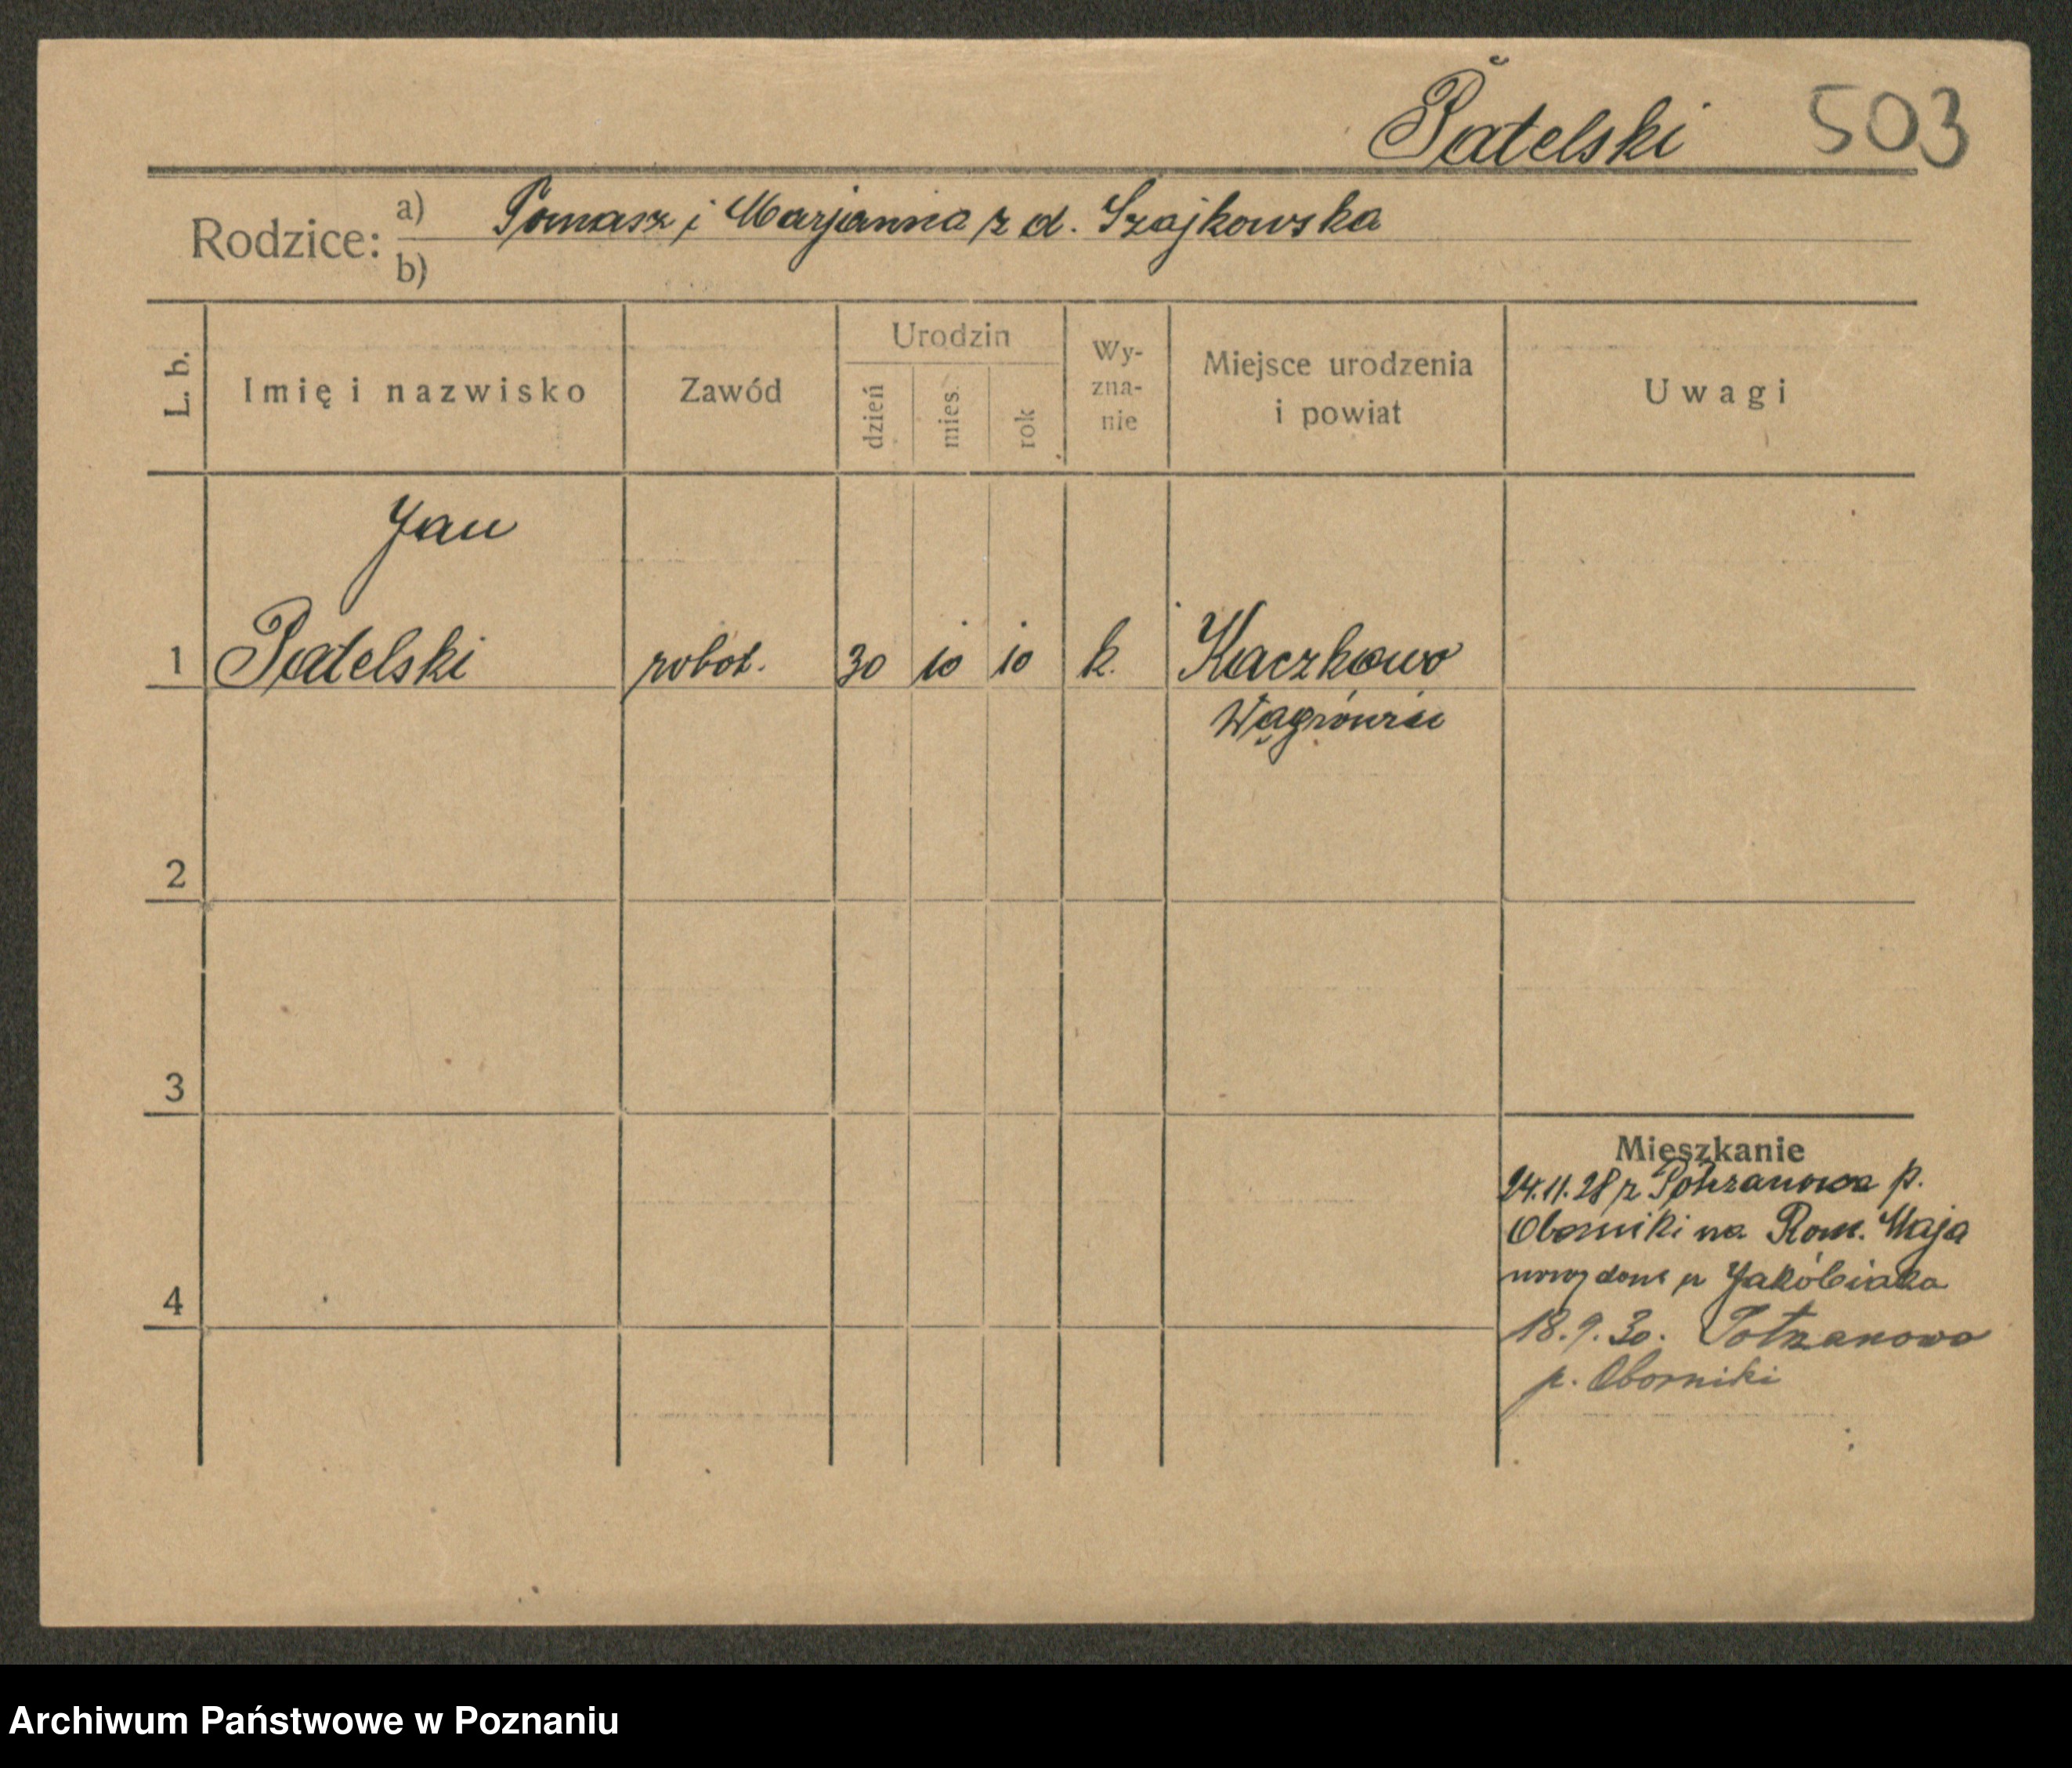 Patelski 503
Rodzice: a) Tomasz i Marjanna z d. Szajkowska
b)
L. b.
Imię i nazwisko
Zawód
Urodzin
dzień
mies.
rok
Wy-
zna-
nie
Miejsce urodzenia
i powiat
Uwagi
Jan
1 Patelski robot. 30 10 10 k. Kaczkowo
Wągrówiec
2
3
Mieszkanie
24.11.28 z Potrzanowa p.
Oborniki na Rom. Maja
u Jakóbiaka
4
18.9.30. Potrzanowo
p. Oborniki
Archiwum Państwowe w Poznaniu